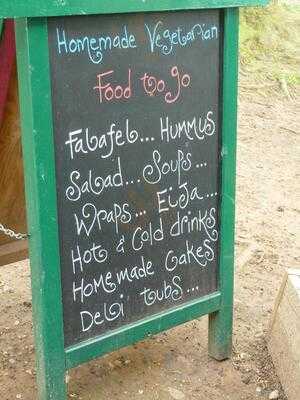 Homemade Vegetarian
Food to go
Falafel... Hummus
Salad... Soups...
Wraps... EiJa...
Hot & Cold drinks
Homemade Cakes
Deli tubs...